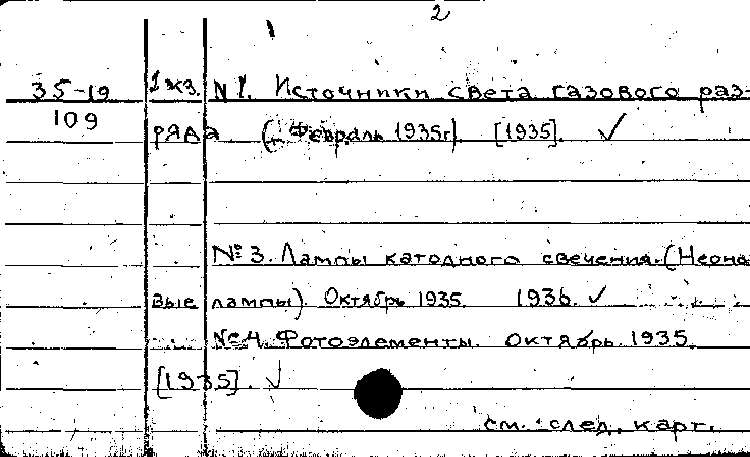 2
35-19 1 экз. № 1. Источники света газового раз-
109 ряда (Февраль 1935г). [1935]. ✓
№ 3. Лампы катодного свечения. (Неоно
вые лампы). Октябрь 1935. 1936. ✓
№ 4. Фотоэлементы. Октябрь 1935.
[1935]. ✓
см. след. карт.